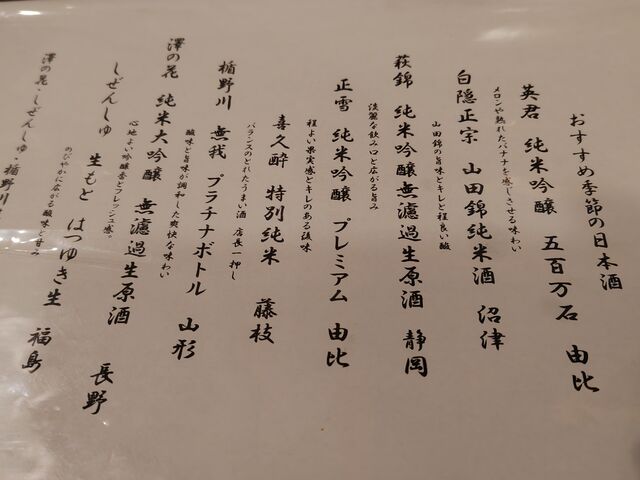 おすすめ季節の日本酒
英君 純米吟醸 五百万石 由比
メロンや熟れたバナナを感じさせる味わい
白隠正宗 山田錦純米酒 沼津
山田錦の旨味とキレと程良い酸
萩錦 純米吟醸無濾過生原酒 静岡
淡麗な飲み口と広がる旨み
正雪 純米吟醸 プレミアム 由比
程よい果実感とキレのある後味
喜久酔 特別純米 藤枝
バランスのとれたうまい酒 店長一押し
楯野川 無我 プラチナボトル 山形
酸味と旨味が調和した爽快な味わい
澤の花 純米大吟醸 無濾過生原酒 長野
心地よい吟醸香とフレッシュ感。
しぜんしゅ 生もと はつゆき生 福島
のびやかに広がる酸味と甘み
澤の花・しぜんしゅ・楯野川